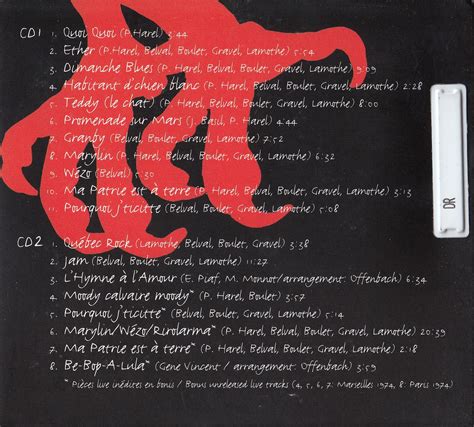 CD1 1. Quoi Quoi (P.Harel) 3:44
2. Ether (P.Harel, Belval, Boulet, Gravel, Lamothe) 5:54
3. Dimanche Blues (P. Harel, Belval, Boulet, Gravel, Lamothe) 9:09
4. Habitant d'chien blanc (P. Harel, Belval, Boulet, Gravel, Lamothe) 2:28
5. Teddy (le chat) (P. Harel, Belval, Boulet, Gravel, Lamothe) 8:00
6. Promenade sur Mars (J. Basil, P. Harel) 4:44
7. Granby (Belval, Boulet, Gravel, Lamothe) 7:52
8. Marylin (P. Harel, Belval, Boulet, Gravel, Lamothe) 6:32
9. Wézo (Belval) 5:30
10. Ma Patrie est à terre (P. Harel, Belval, Boulet, Gravel, Lamothe) 3:13
11. Pourquoi j'ticitte (Belval, Boulet, Gravel, Lamothe) 5:08
CD2 1. Québec Rock (Lamothe, Belval, Boulet, Gravel) 3:38
2. Jam (Belval, Boulet, Gravel, Lamothe) 11:27
3. L'Hymne à l'Amour (E. Piaf, M. Monnot/arrangement: Offenbach) 6:34
4. Moody calvaire moody* (P. Harel, Boulet) 3:57
5. Pourquoi j'ticitte* (Belval, Boulet, Gravel, Lamothe) 5:14
6. Marylin/Wézo/Rirolarma* (P. Harel, Belval, Boulet, Gravel, Lamothe) 20:39
7. Ma Patrie est à terre* (P. Harel, Belval, Boulet, Gravel, Lamothe) 2:18
8. Be-Bop-A-Lula* (Gene Vincent / arrangement: Offenbach) 3:59
* Pièces live inédites en bonis / Bonus unreleased live tracks (4, 5, 6, 7: Marseilles 1974, 8: Paris 1974)
DR